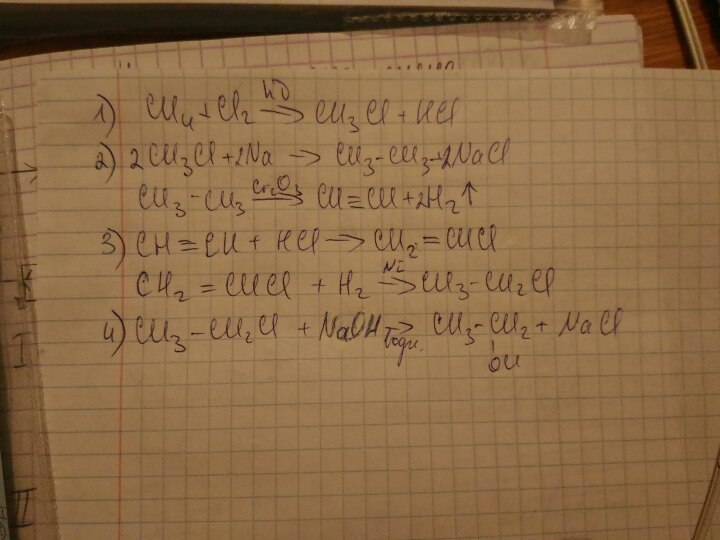 1) CH₄ + Cl₂ →(hν) CH₃Cl + HCl
2) 2CH₃Cl + 2Na → CH₃-CH₃ + 2NaCl
CH₃-CH₃ →(Cr₂O₃) CH≡CH + 2H₂↑
3) CH≡CH + HCl → CH₂=CHCl
CH₂=CHCl + H₂ →(Ni) CH₃-CH₂Cl
4) CH₃-CH₂Cl + NaOH →(водн.) CH₃-CH₂ + NaCl
OH
I
II